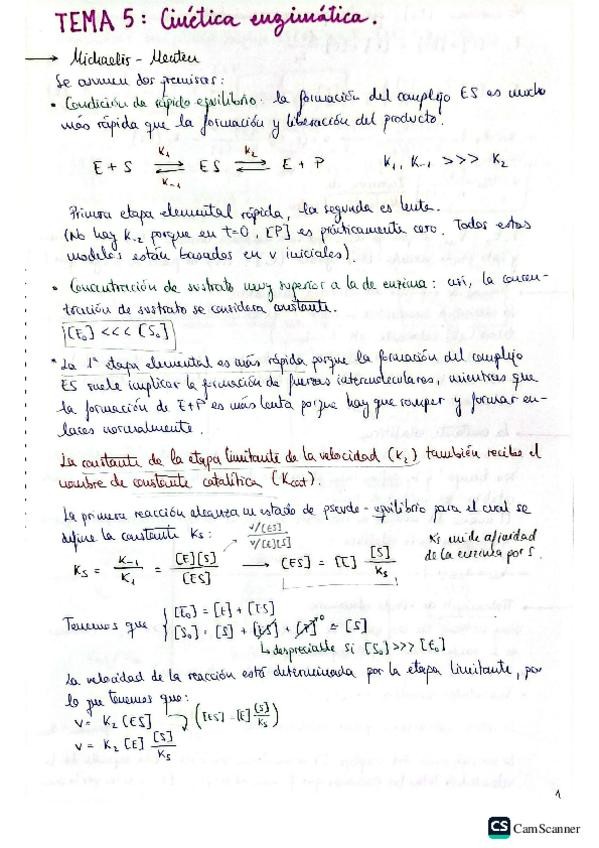 TEMA 5: Cinética enzimática.
→ Michaelis - Menten
Se asumen dos premisas:
• Condición de rápido equilibrio: la formación del complejo ES es mucho
más rápida que la formación y liberación del producto.
E + S ⇌ ES ⇌ E + P K₁, K₋₁ >>> K₂
K₁ K₂
K₋₁
Primera etapa elemental rápida, la segunda es lenta.
(No hay K₋₂ porque en t=0, [P] es prácticamente cero. Todos estos
modelos están basados en v iniciales).
• Concentración de sustrato muy superior a la de enzima: así, la concen-
tración de sustrato se considera constante.
[E₀] <<< [S₀]
* La 1ª etapa elemental es más rápida porque la formación del complejo
ES suele implicar la formación de fuerzas intermoleculares, mientras que
la formación de E+P es más lenta porque hay que romper y formar en-
laces normalmente.
La constante de la etapa limitante de la velocidad (K₂) también recibe el
nombre de constante catalítica (Kcat).
La primera reacción alcanza un estado de pseudo-equilibrio para el cual se
define la constante Ks:
v/[ES]
v/[E][S]
Ks = K₋₁/K₁ = [E][S]/[ES] → [ES] = [E] [S]/Ks
Ks mide afinidad
de la enzima por S.
Tenemos que { [E₀] = [E] + [ES]
[S₀] = [S] + [ES] + [P]⁰ ≃ [S]
↳ despreciable si [S₀] >>> [E₀]
La velocidad de la reacción está determinada por la etapa limitante, por
lo que tenemos que:
v = K₂ [ES] ([ES] = [E] [S]/Ks)
v = K₂ [E] [S]/Ks
1
CS CamScanner